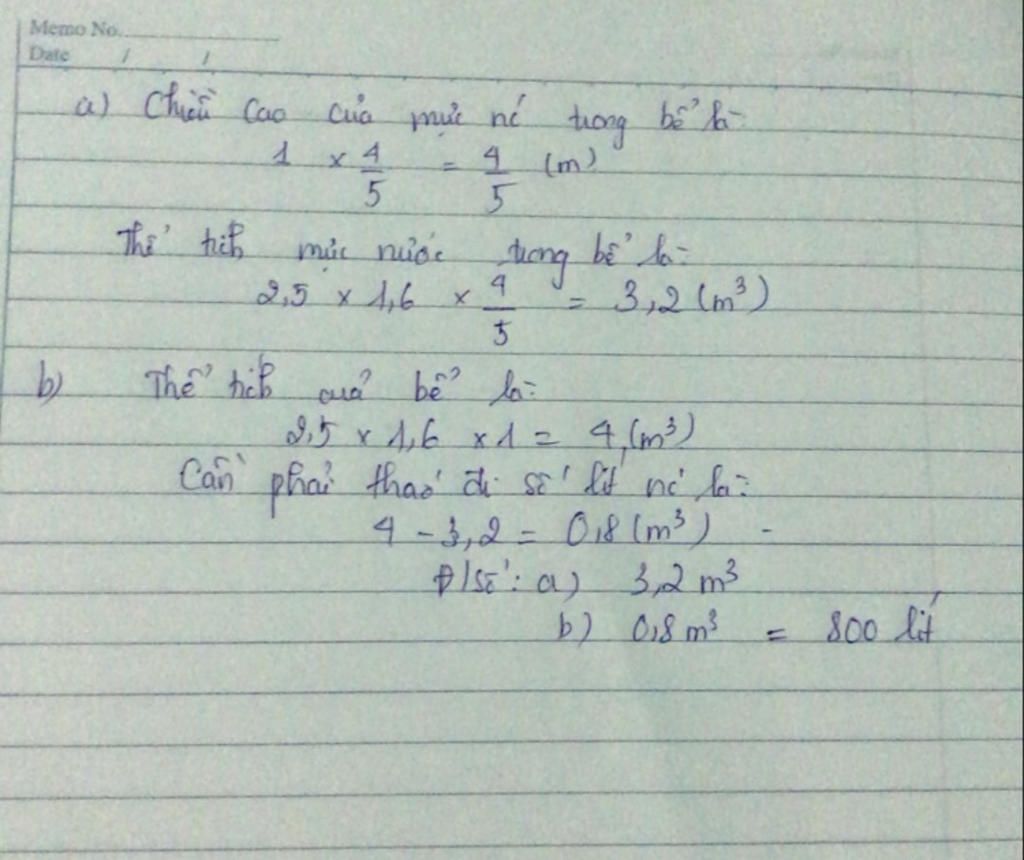 Memo No.
Date / /
a) Chiều cao của mực nc' trong bể là:
1 × 4/5 = 4/5 (m)
Thể tích mực nước trong bể là:
2,5 × 1,6 × 4/5 = 3,2 (m³)
b) Thể tích của bể là:
2,5 × 1,6 × 1 = 4 (m³)
Cần phải tháo đi số lít nc' là:
4 - 3,2 = 0,8 (m³)
Đ/Số: a) 3,2 m³
b) 0,8 m³ = 800 lít